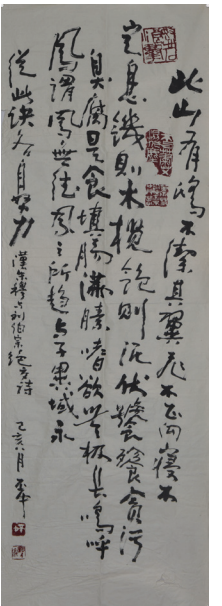 北山有鴟不潔其翼飛不正向寢不
定息饑則木欖飽則泥伏饕餮貪污
臭腐是食填腸滿膆嗜欲無极長鳴呼
鳳謂鳳無德鳳之所趨与子異域永
從此訣各自努力 漢朱穆与刘伯宗绝交詩 己亥八月